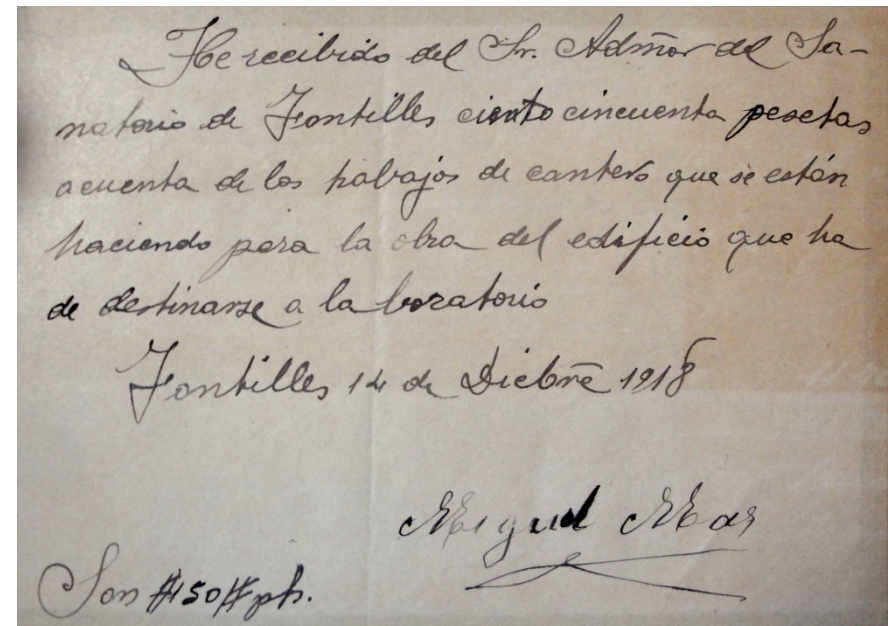 He recibido del Sr. Admõr del Sa-
natorio de Fontilles ciento cincuenta pesetas
acuenta de los trabajos de cantero que se están
haciendo para la obra del edificio que ha
de destinarse a la boratorio
Fontilles 14 de Diciembrē 1918
Miguel Mas
Son #150# pts.